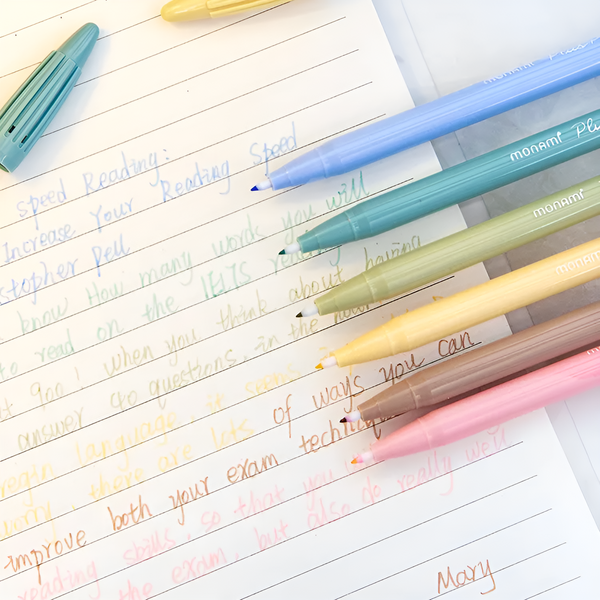 Speed Reading:
Increase Your Reading Speed
stopher Pell
know How many words you will
to read on the IELTS reading
900! when you think about having
answer 40 questions, in the hour
language, it seems
worry, there are lots of ways you can
improve both your exam techniqu
reading skills, so that you
the exam, but also do really well
Mary
monami Plus
monami Plu
monami
monami
mo